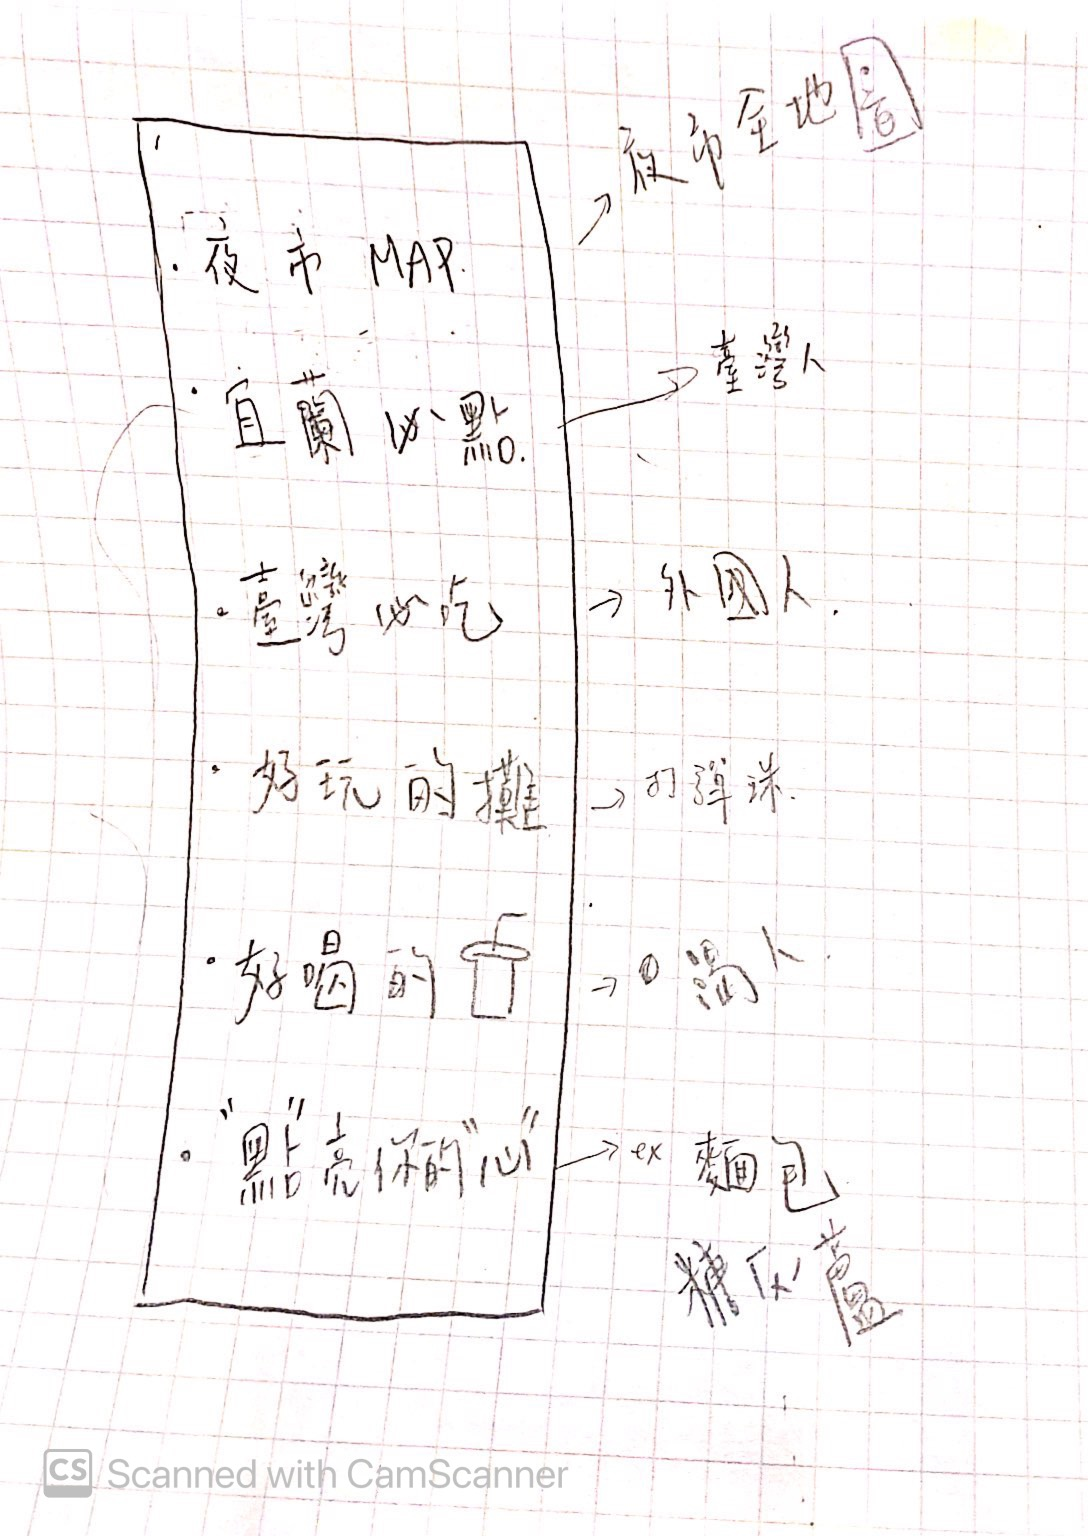 夜市全地圖
夜市 MAP.
宜蘭必點.
臺灣人
臺灣必吃
外國人.
好玩的攤
打彈珠.
好喝的
口渴人.
"點"亮你的"心"
ex 麵包
糖灰蘆
CS Scanned with CamScanner